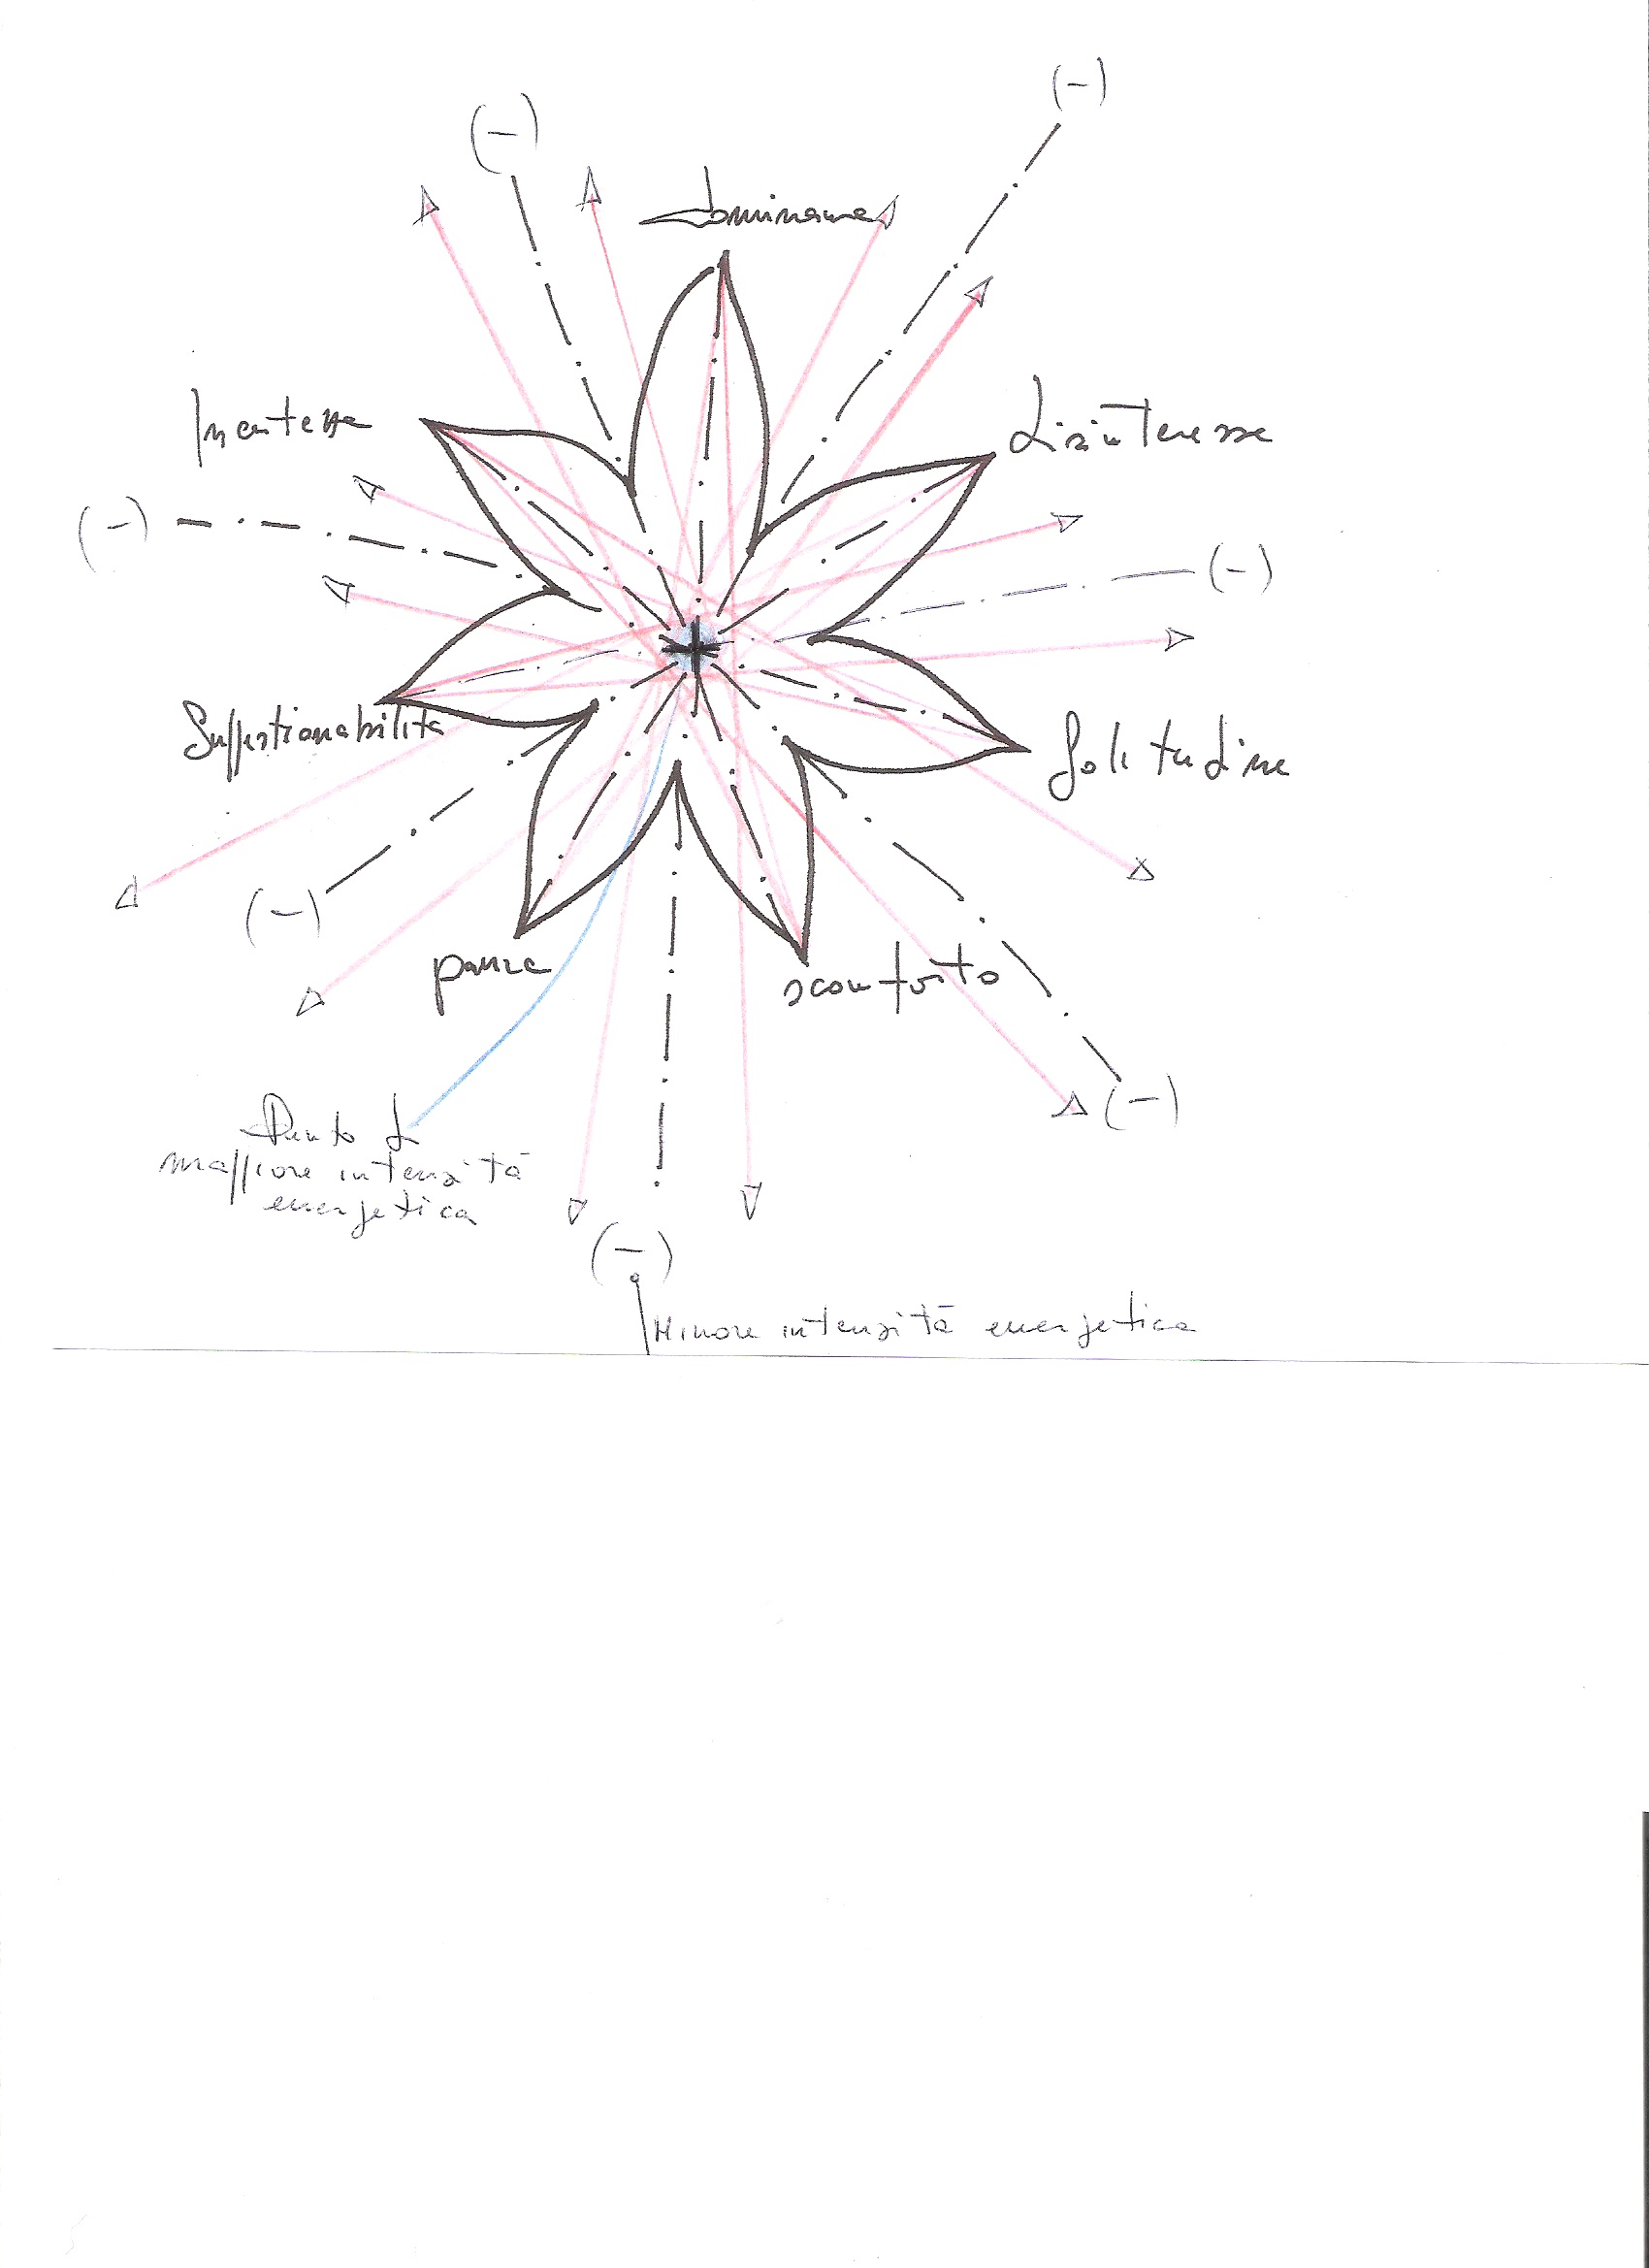 (-)
(-)
dominanza
Incertezza
disinteresse
(-)
(-)
Suggestionabilità
solitudine
(-)
paura
sconforto
(-)
Punto di
maggiore intensità
energetica
(-)
Minore intensità energetica